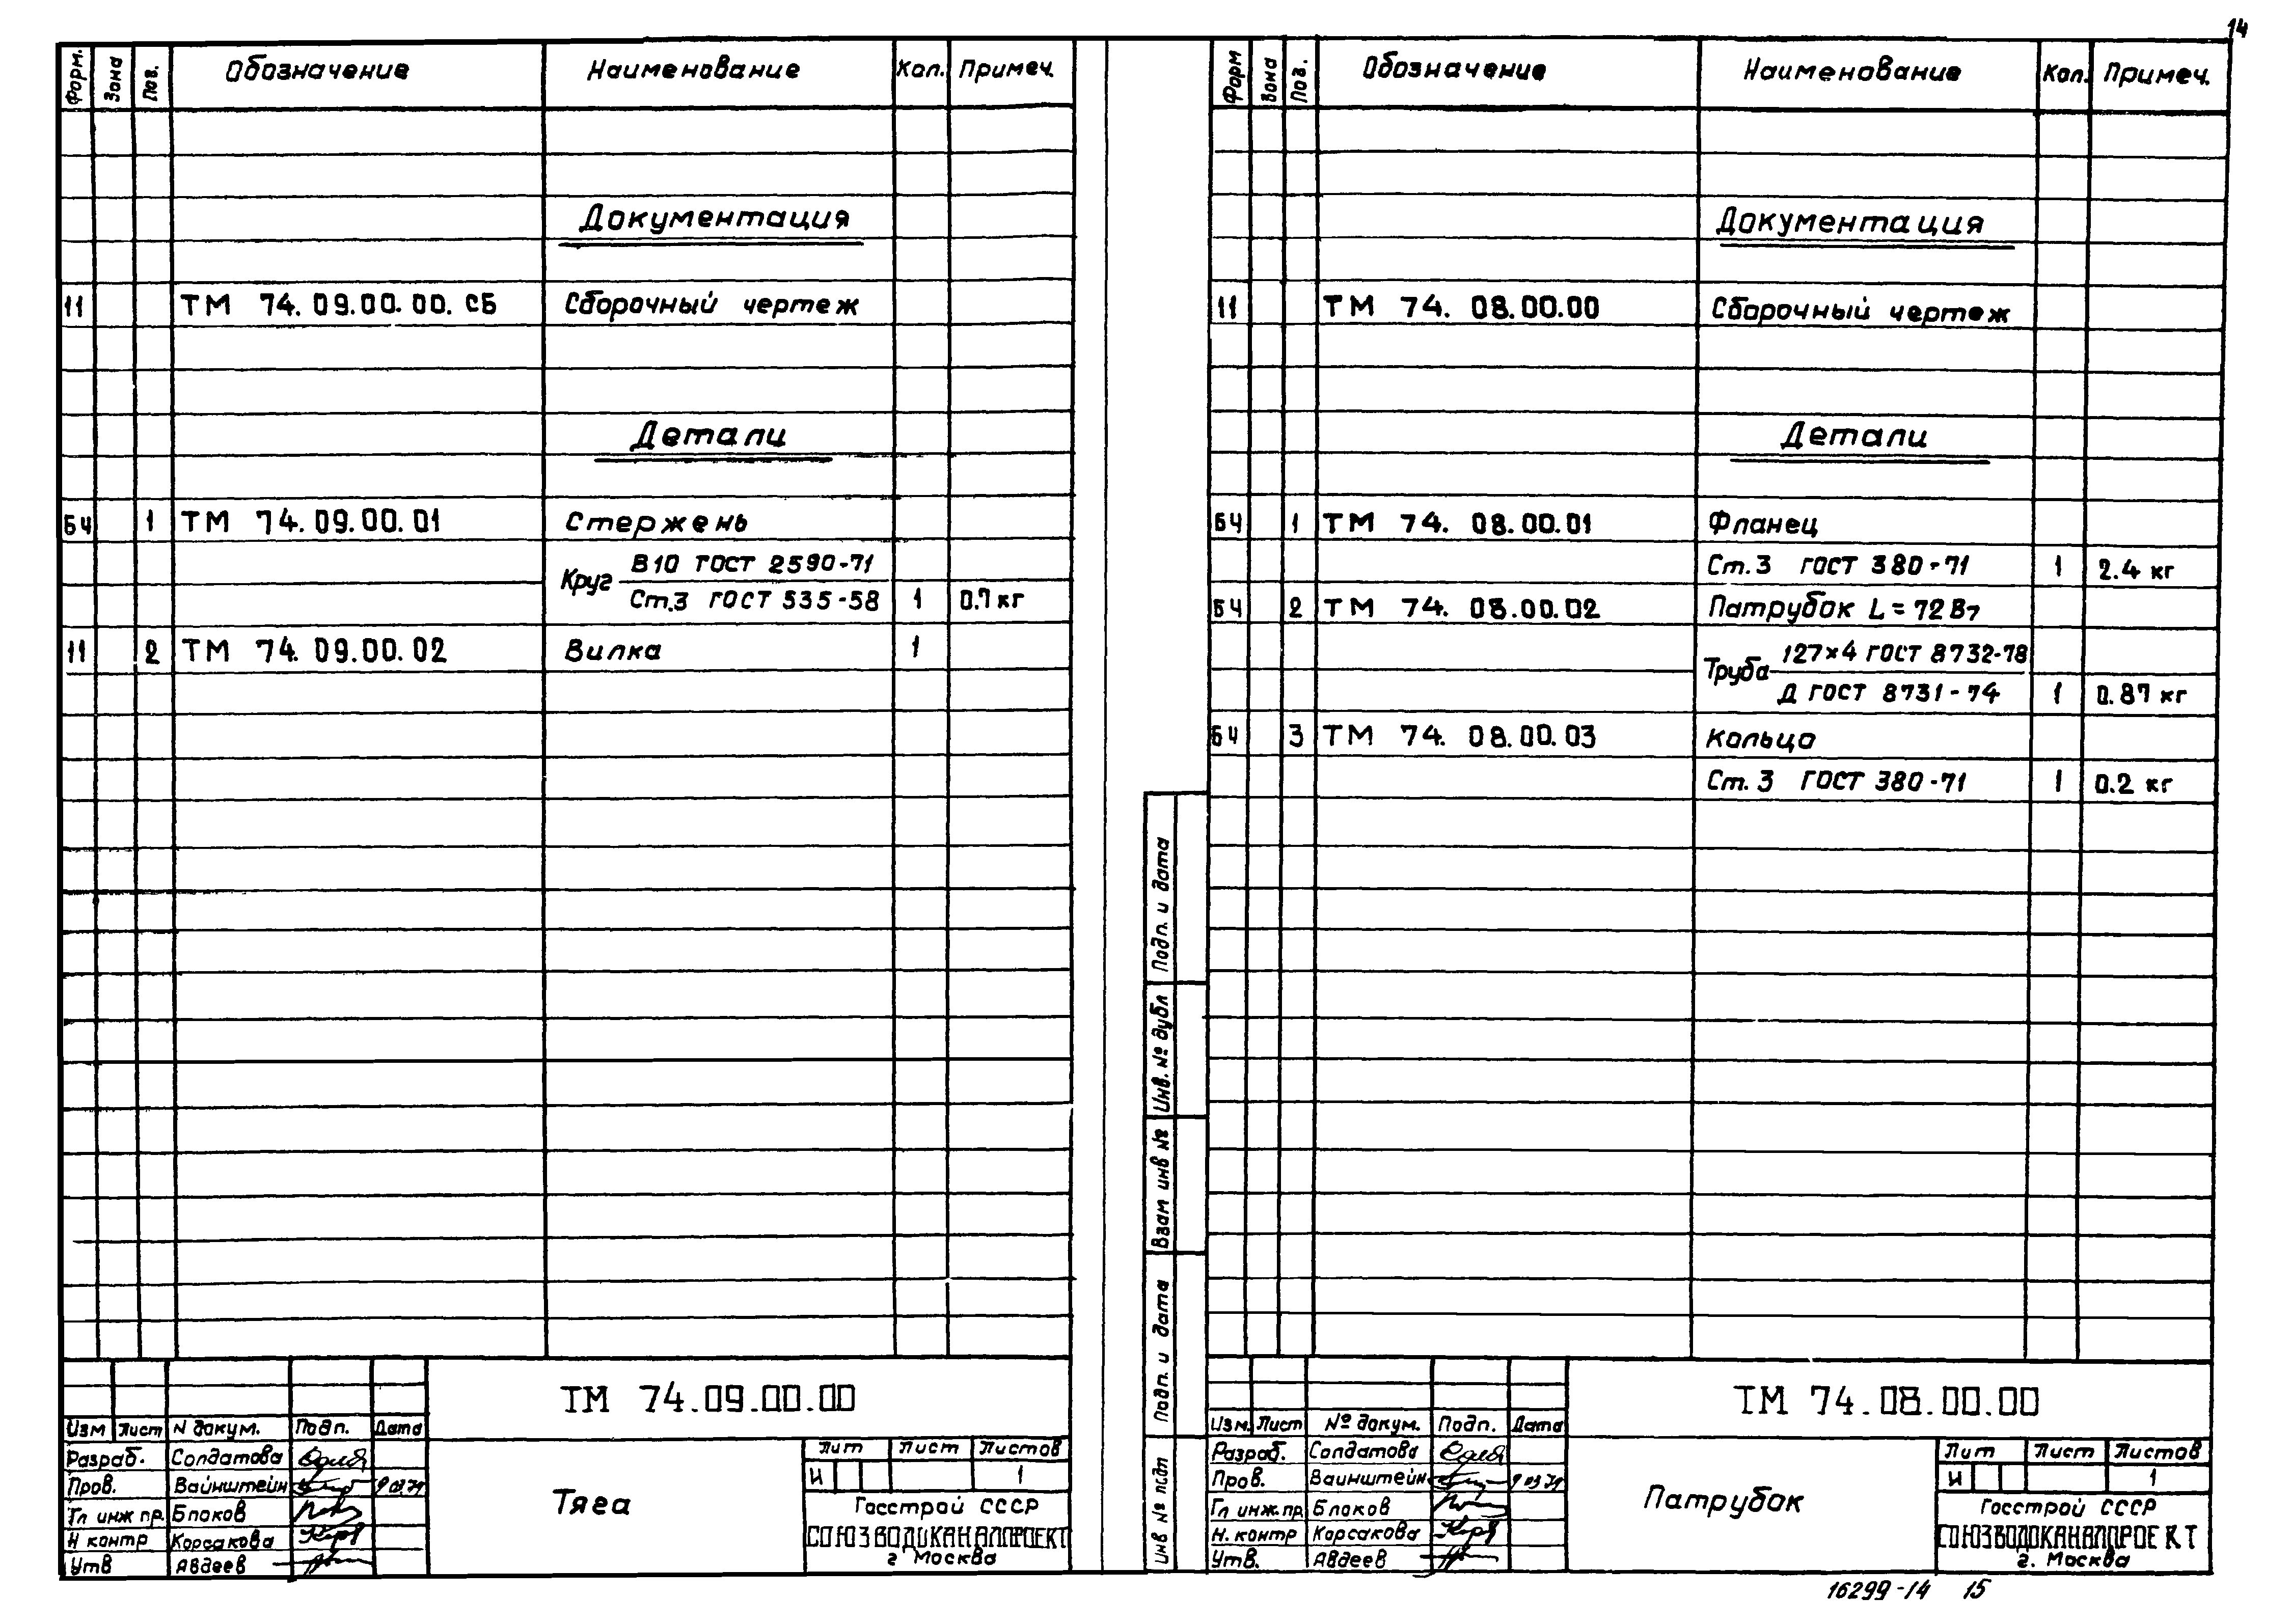 14
Форм. Зона Поз. Обозначение Наименование Кол. Примеч.
Документация
11 ТМ 74.09.00.00.СБ Сборочный чертеж
Детали
БЧ 1 ТМ 74.09.00.01 Стержень
Круг В10 ГОСТ 2590-71
Ст.3 ГОСТ 535-58 1 0.7 кг
11 2 ТМ 74.09.00.02 Вилка 1
ТМ 74.09.00.00
Изм Лист N докум. Подп. Дата
Разраб. Солдатова
Пров. Вайнштейн 9.03.79
Гл инж пр. Блоков
Н контр Корсакова
Утв Авдеев
Тяга
Лит Лист Листов
И 1
Госстрой СССР
СОЮЗВОДОКАНАЛПРОЕКТ
г Москва
Форм Зона Поз. Обозначение Наименование Кол. Примеч.
Документация
11 ТМ 74. 08.00.00 Сборочный чертеж
Детали
БЧ 1 ТМ 74. 08.00.01 Фланец
Ст.3 ГОСТ 380-71 1 2.4 кг
БЧ 2 ТМ 74. 08.00.02 Патрубок L = 72 В7
Труба 127×4 ГОСТ 8732-78
Д ГОСТ 8731-74 1 0.87 кг
БЧ 3 ТМ 74. 08.00.03 Кольцо
Ст. 3 ГОСТ 380-71 1 0.2 кг
Подп. и дата
Инв. № дубл
Взам инв №
Подп. и дата
Инв № подл
ТМ 74.08.00.00
Изм. Лист № докум. Подп. Дата
Разраб. Солдатова
Пров. Вайнштейн 9 03 79
Гл инж.пр. Блоков
Н. контр Корсакова
Утв. Авдеев
Патрубок
Лит Лист Листов
И 1
Госстрой СССР
СОЮЗВОДОКАНАЛПРОЕКТ
г. Москва
16299-14 15